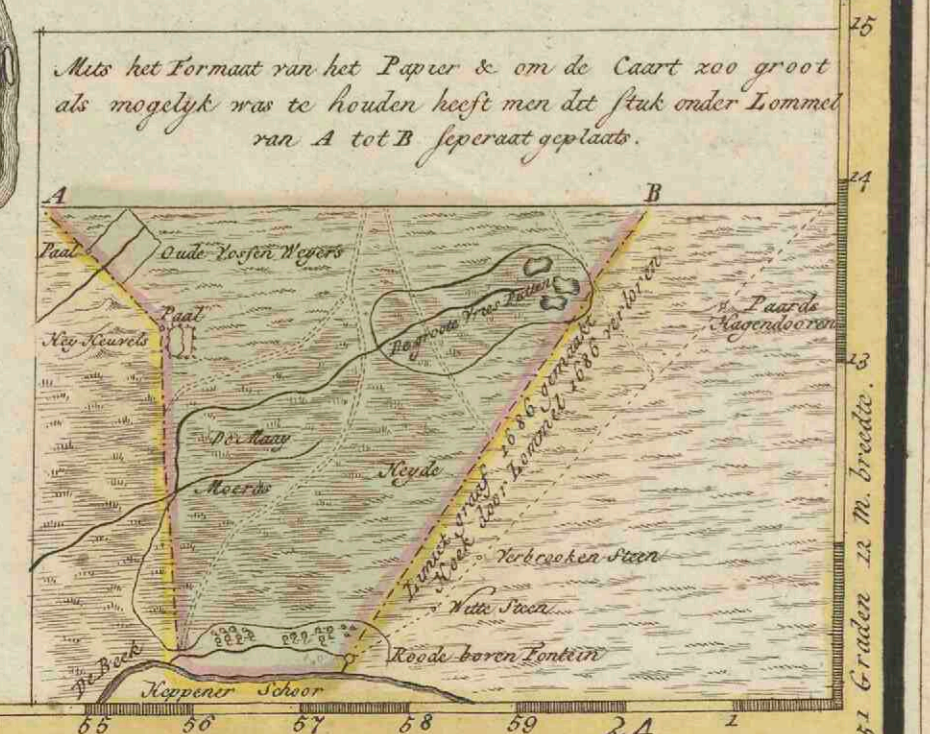 Mits het Formaat van het Papier & om de Caart zoo groot
als mogelyk was te houden heeft men dit stuk onder Lommel
van A tot B seperaat geplaats.
15
14
A
B
Paal
Oude Vossen Weyers
Paal
Hey Heuvels
De groote Vries Putten
Paards
Hagendooren
13
De Maay
Moerds
Heyde
Limiet graaf 1686 gemaakt
Hoek door Lommel 1686 verloren
Verbrooken Steen
Witte Steen
Roode boven Fontein
De Beek
Keppener Schoor
51 Graden 12 M. breedte.
55
56
57
58
59
24
1